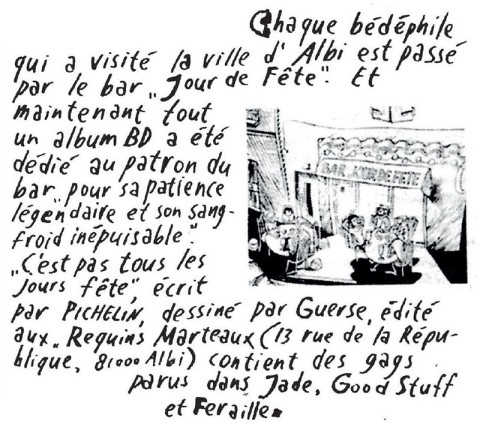 Chaque bédéphile
qui a visité la ville d'Albi est passé
par le bar „Jour de Fête". Et
maintenant tout
un album BD a été
dédié au patron du
bar „pour sa patience
légendaire et son sang-
froid inépuisable".
„C'est pas tous les
jours fête", écrit
par PICHELIN, dessiné par Guerse, édité
aux „Requins Marteaux (13 rue de la Répu-
blique, 81000 Albi) contient des gags
parus dans Jade, Good Stuff
et Feraille.
BAR JOUR DE FETE